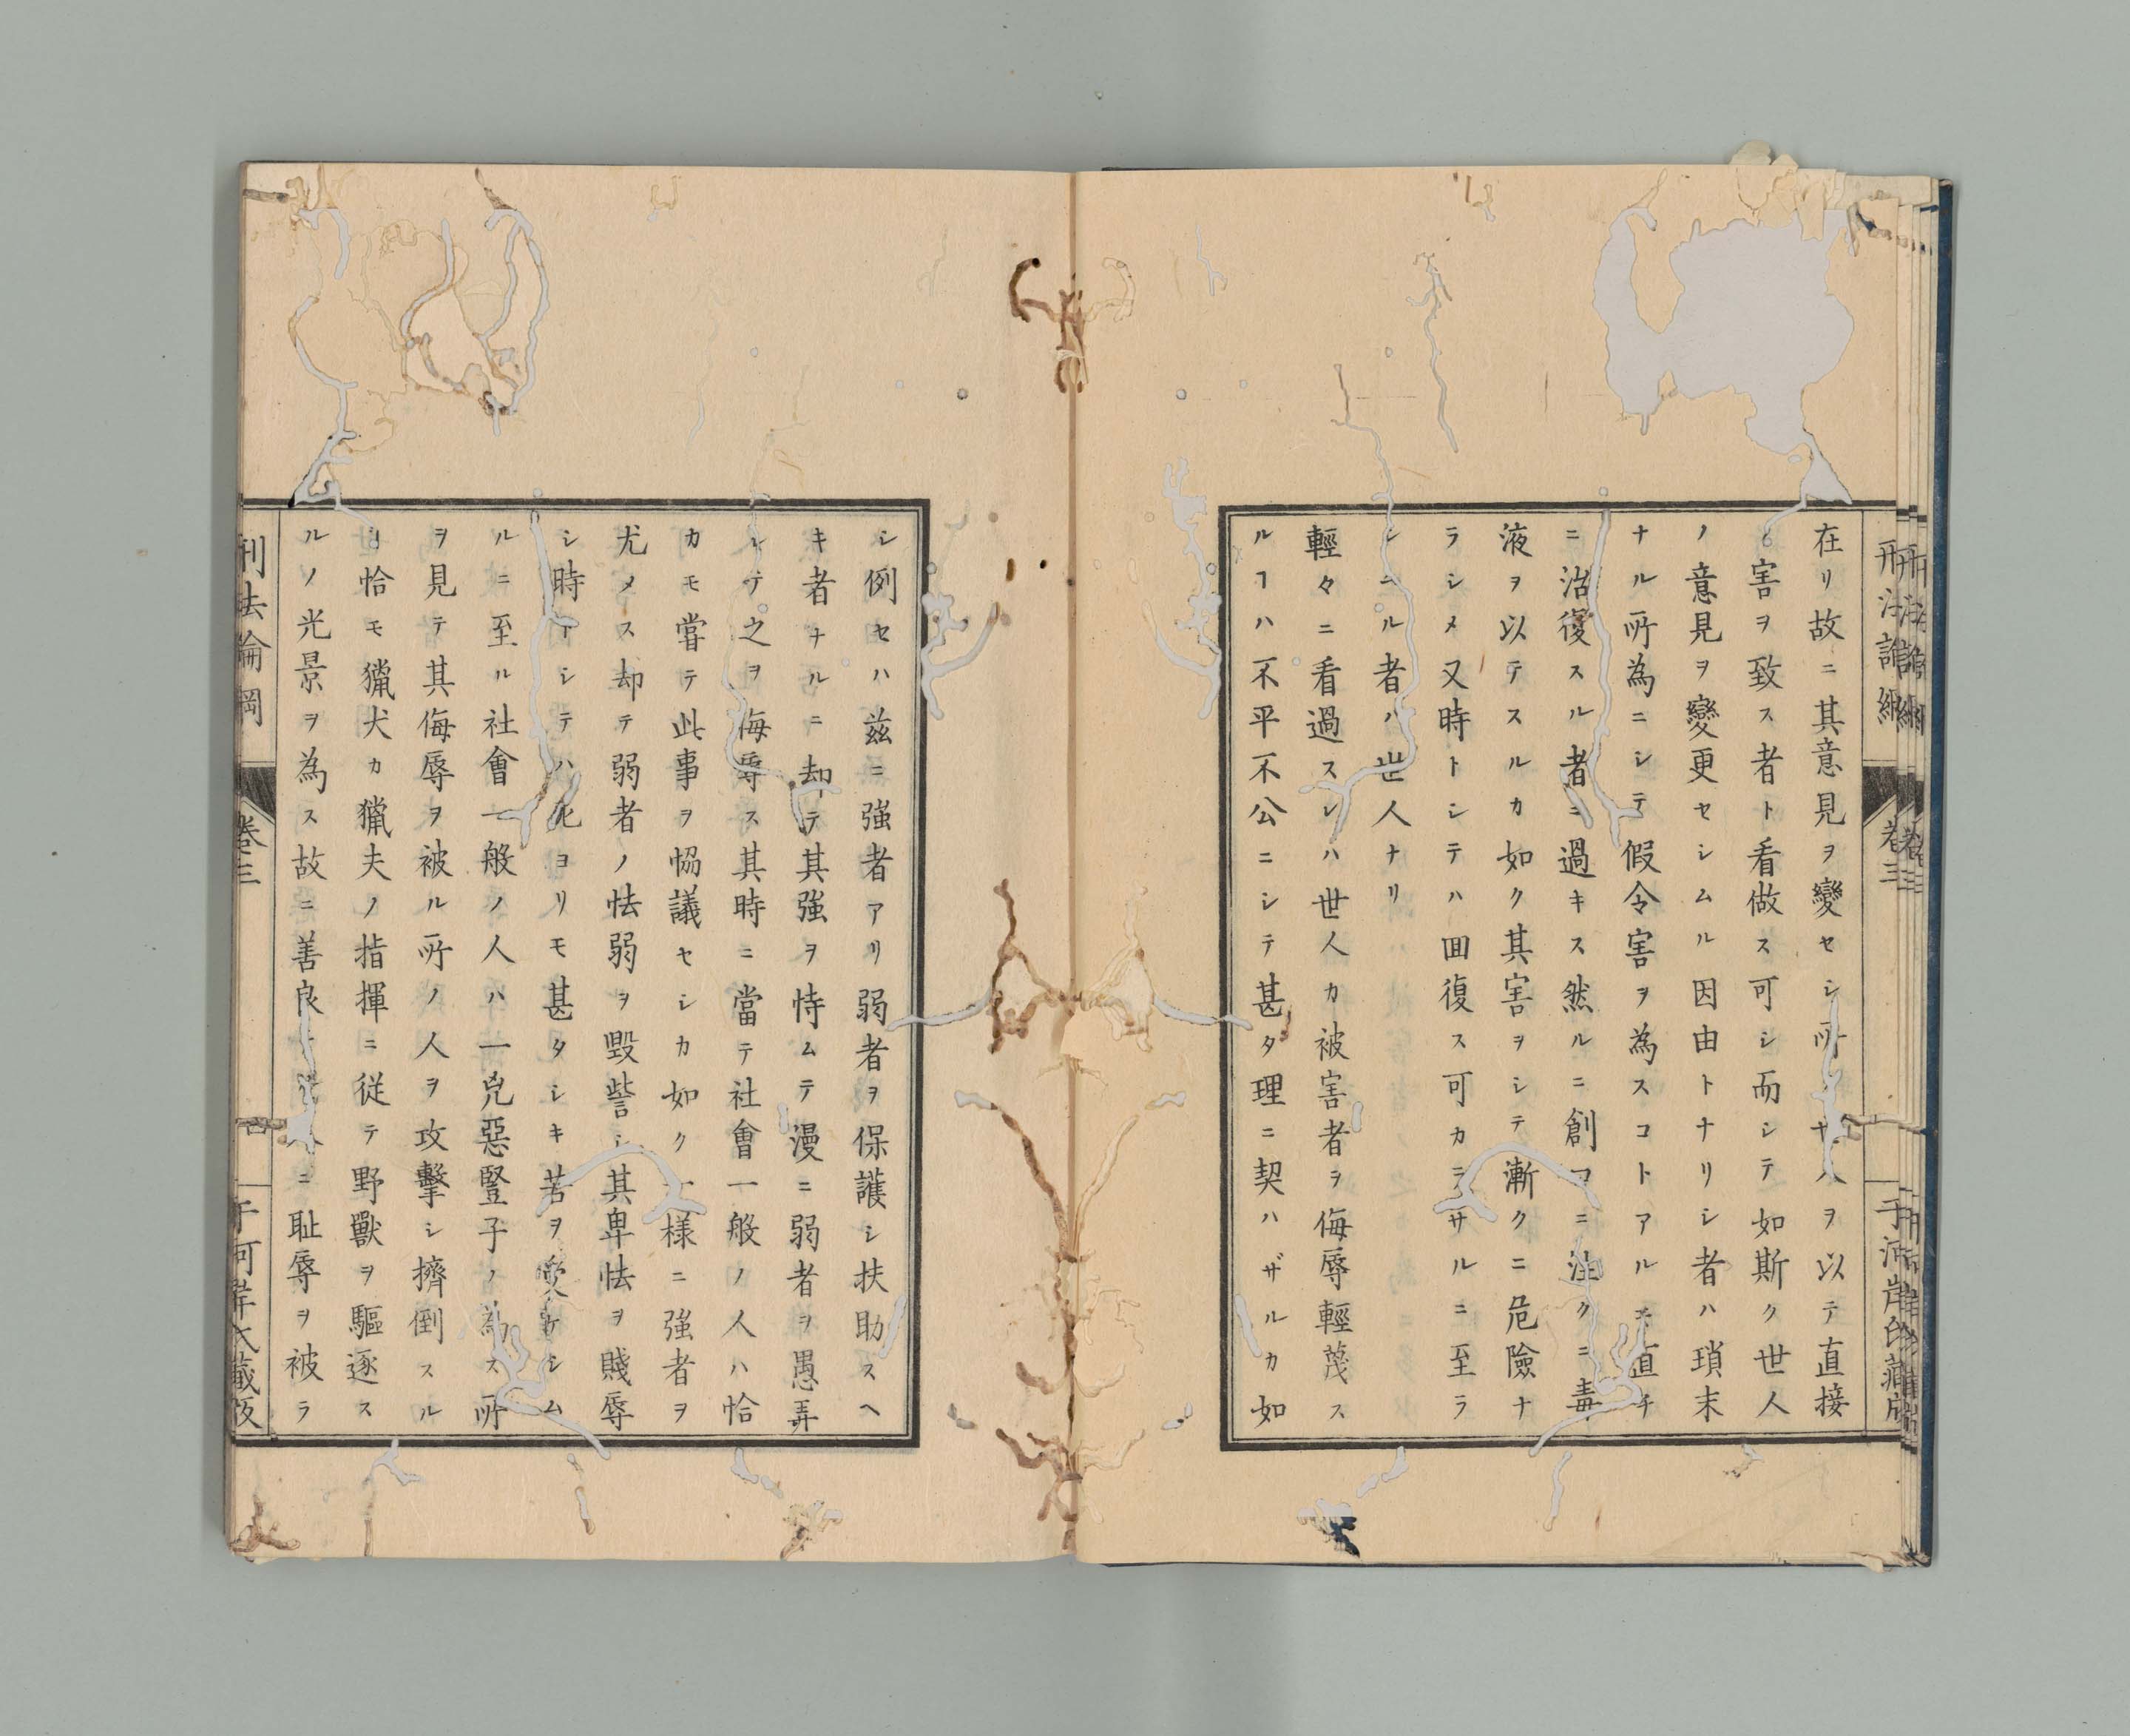 在リ故ニ其意見ヲ變セシ所人ヲ以テ直接
害ヲ致ス者ト看做ス可シ而シテ如斯ク世人
ノ意見ヲ變更セシムル因由トナリシ者ハ瑣末
ナル所為ニシテ假令害ヲ為スコトアルモ直チ
ニ治復スル者ニ過キス然ルニ創口ニ注クニ毒
液ヲ以テスルカ如ク其害ヲシテ漸クニ危險ナ
ラシメ又時トシテハ囬復ス可カラサルニ至ラ
シムル者ハ世人ナリ
輕々ニ看過スレハ世人カ被害者ヲ侮辱輕茂ス
ルヿハ不平不公ニシテ甚タ理ニ契ハザルカ如
シ例セハ兹ニ強者アリ弱者ヲ保護シ扶助スヘ
キ者ナルニ却テ其強ヲ恃ムテ漫ニ弱者ヲ愚弄
シテ之ヲ侮辱ス其時ニ當テ社會一般ノ人ハ恰
カモ甞テ此事ヲ恊議セシカ如ク一様ニ強者ヲ
尤メス却テ弱者ノ怯弱ヲ毀訾シ其卑怯ヲ賤辱
シ時トシテハ死ヨリモ甚タシキ苦ヲ受ケシム
ルニ至ル社會一般ノ人ハ一兇惡豎子ノ為ス所
ヲ見テ其侮辱ヲ被ル所ノ人ヲ攻擊シ擠倒スル
恰モ獵犬カ獵夫ノ指揮ニ従テ野獸ヲ驅逐ス
ルノ光景ヲ為ス故ニ善良ニ耻辱ヲ被ラ
刑法論綱
卷三
四
于河岸氏藏版